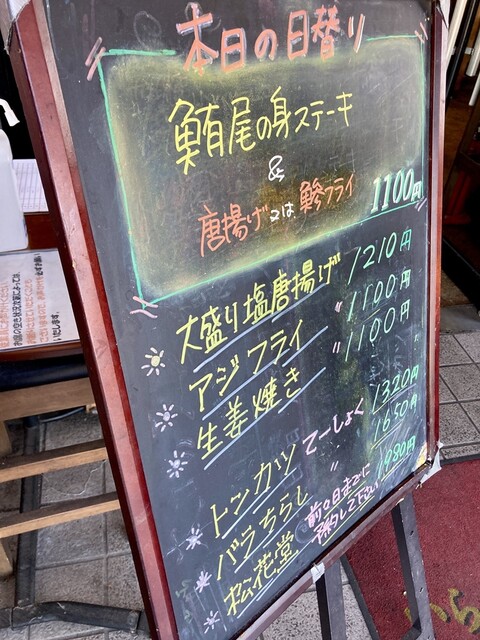 本日の日替り
鮪尾の身ステーキ
&
唐揚げ又は鯵フライ 1100円
大盛り塩唐揚げ 1210円
アジフライ 〃 1100円
生姜焼き 〃 1100円
トンカツ てーしょく 1320円
バラちらし 〃 1650円
松花堂 前の日までに予約して下さい 1980円